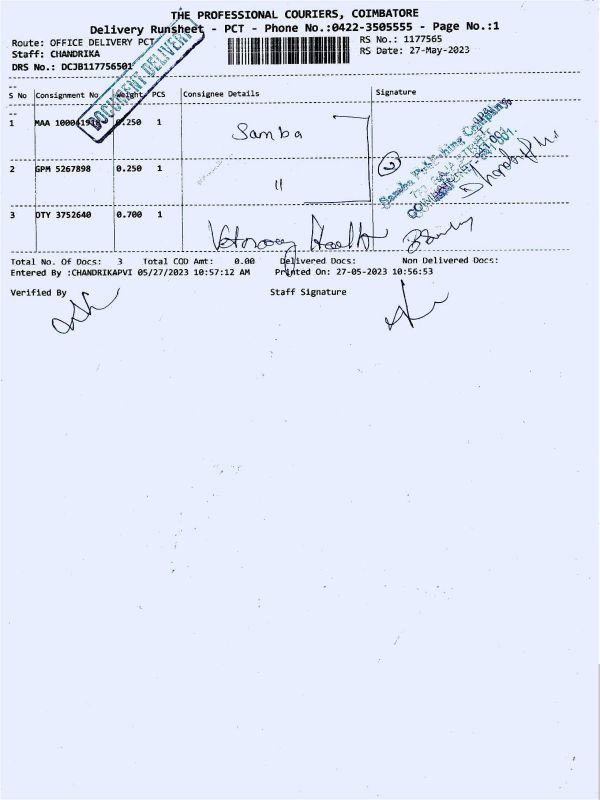 THE PROFESSIONAL COURIERS, COIMBATORE
Delivery Runsheet - PCT - Phone No.:0422-3505555 - Page No.:1
Route: OFFICE DELIVERY PCT
RS No.: 1177565
Staff: CHANDRIKA
RS Date: 27-May-2023
DRS No.: DCJB117756501
DOCUMENT DELIVERY
S No Consignment No Weight PCS Consignee Details Signature
1 MAA 10004193 0.250 1 Samba
2 GPM 5267898 0.250 1 "
3 DTY 3752640 0.700 1
Samba Publishing Company
Total No. Of Docs: 3 Total COD Amt: 0.00 Delivered Docs: Non Delivered Docs:
Entered By :CHANDRIKAPVI 05/27/2023 10:57:12 AM Printed On: 27-05-2023 10:56:53
Verified By Staff Signature